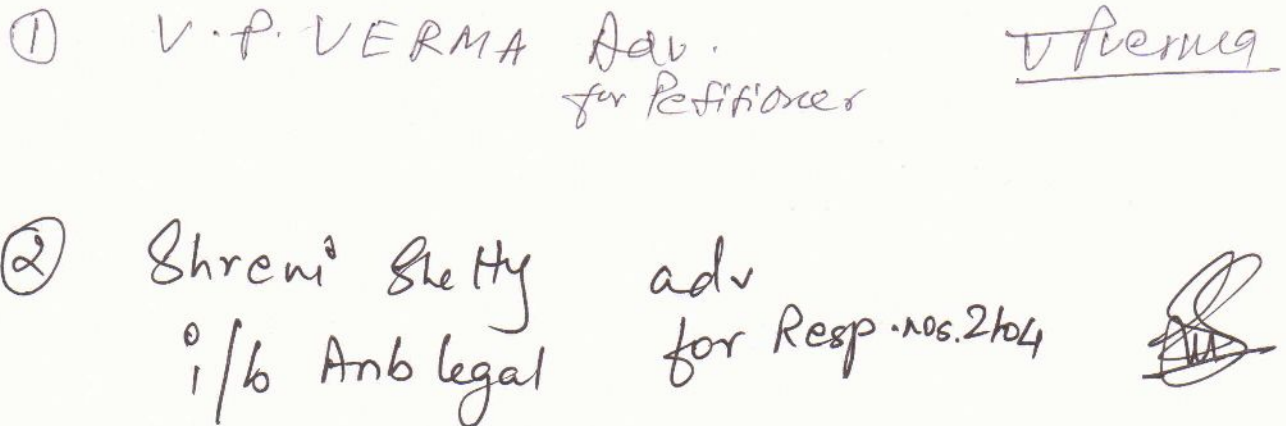 ① V.P. VERMA Adv. VPVerma
for Petitioner
② Shreni Shetty adv
i/b Anb legal for Resp. nos. 2to4